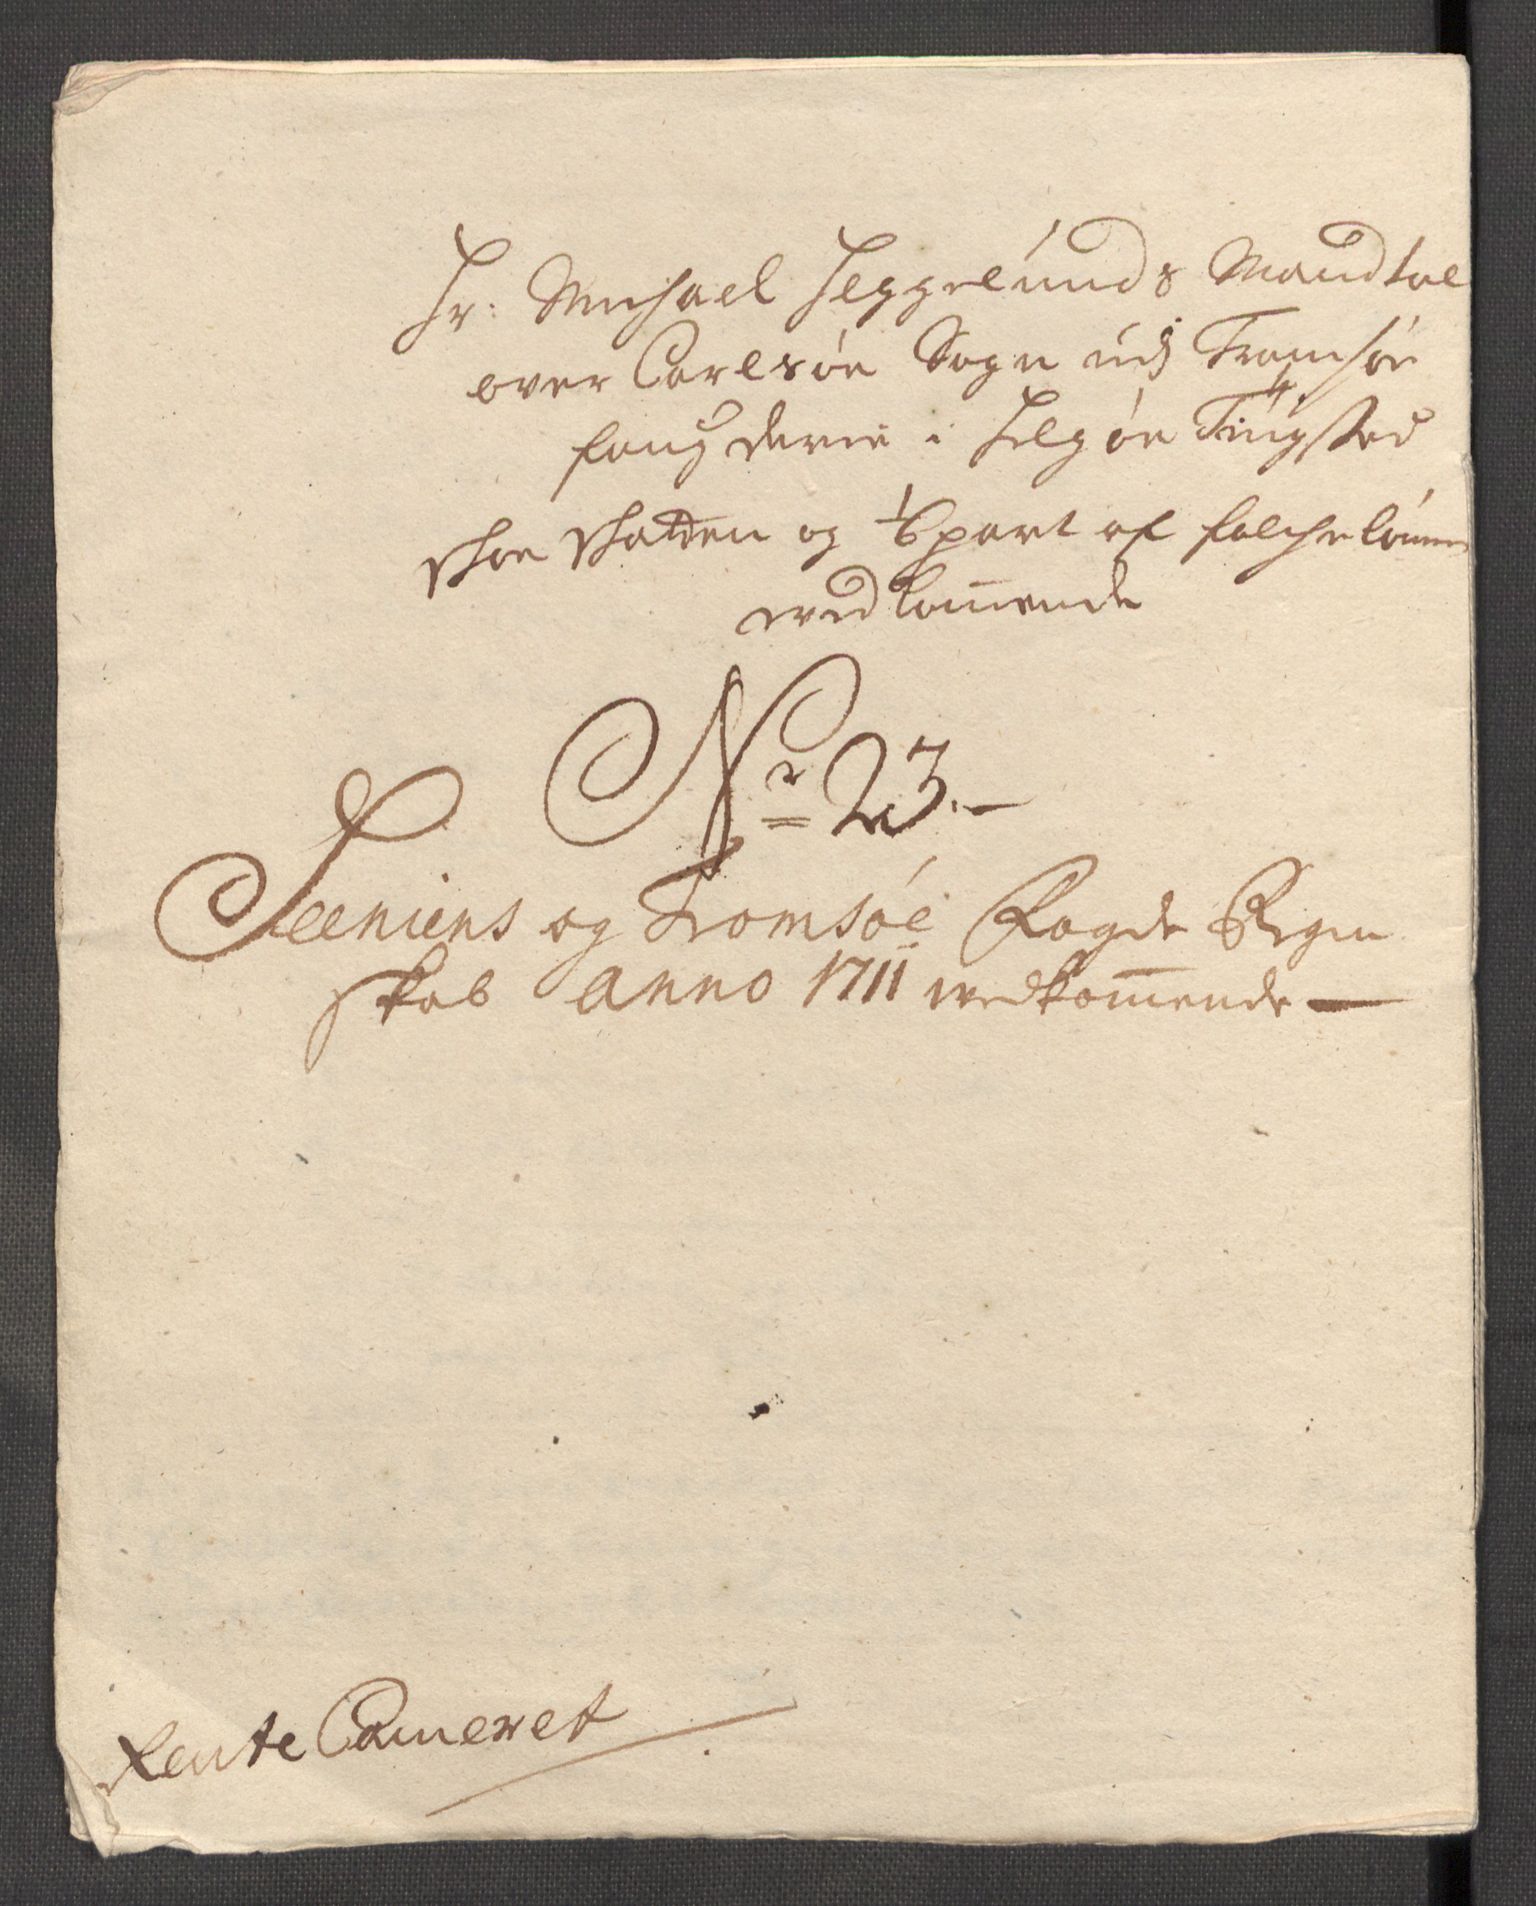 Hr: Michael Heggelunds Mandtal
over Carlsøe Sogn udj Tromsøe
fougderie i Helgøe Tingsted
Skoe Skatten og 1/6 part af folche lønnen
vedkom̅ende
No 23.
Seeniens og Tromsøe Fogde Regen
skab Anno 1711 vedkom̅ende
Rente Cameret